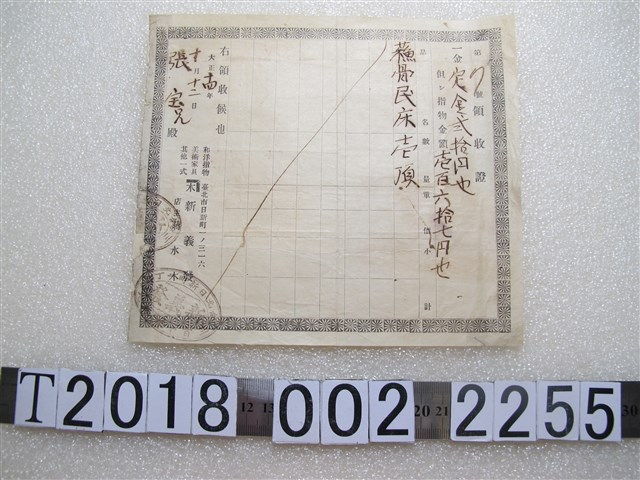 第 号 領收證
一金 定金弐拾円也
但シ指物金額壱百六拾七円也
品名 數量 單價 小計
蘓骨民床壱頂
右領收候也
大正 十四 年
十月十二日
張宝兄殿
和洋指物
美術家具
其他一式
臺北市日新町一ノ三一六
木新義發
店主 水木
T2018 002 2255
12 13
20 21
30